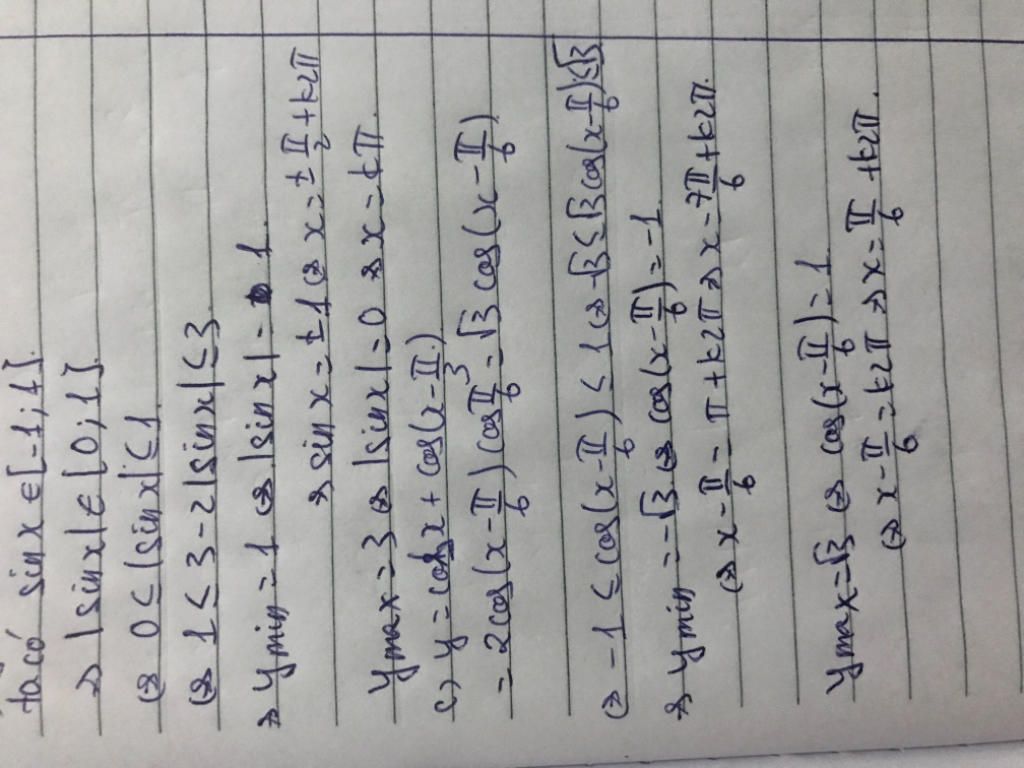 ta có sin x ∈ [-1; 1].
→ |sin x| ∈ [0; 1]
⇔ 0 ≤ |sin x| ≤ 1
⇔ 1 ≤ 3 - 2|sin x| ≤ 3.
→ y min = 1 ⇔ |sin x| = 1
→ sin x = ± 1 ⇔ x = ± π/2 + k2π
y max = 3 ⇔ |sin x| = 0 → x = kπ.
c) y = cos x + cos(x - π/3)
= 2cos(x - π/6) cos π/6 = √3 cos(x - π/6)
⇔ -1 ≤ cos(x - π/6) ≤ 1 ⇔ -√3 ≤ √3 cos(x - π/6) ≤ √3
→ y min = -√3 ⇔ cos(x - π/6) = -1
⇔ x - π/6 = π + k2π → x = 7π/6 + k2π.
y max = √3 ⇔ cos(x - π/6) = 1
⇔ x - π/6 = k2π → x = π/6 + k2π.